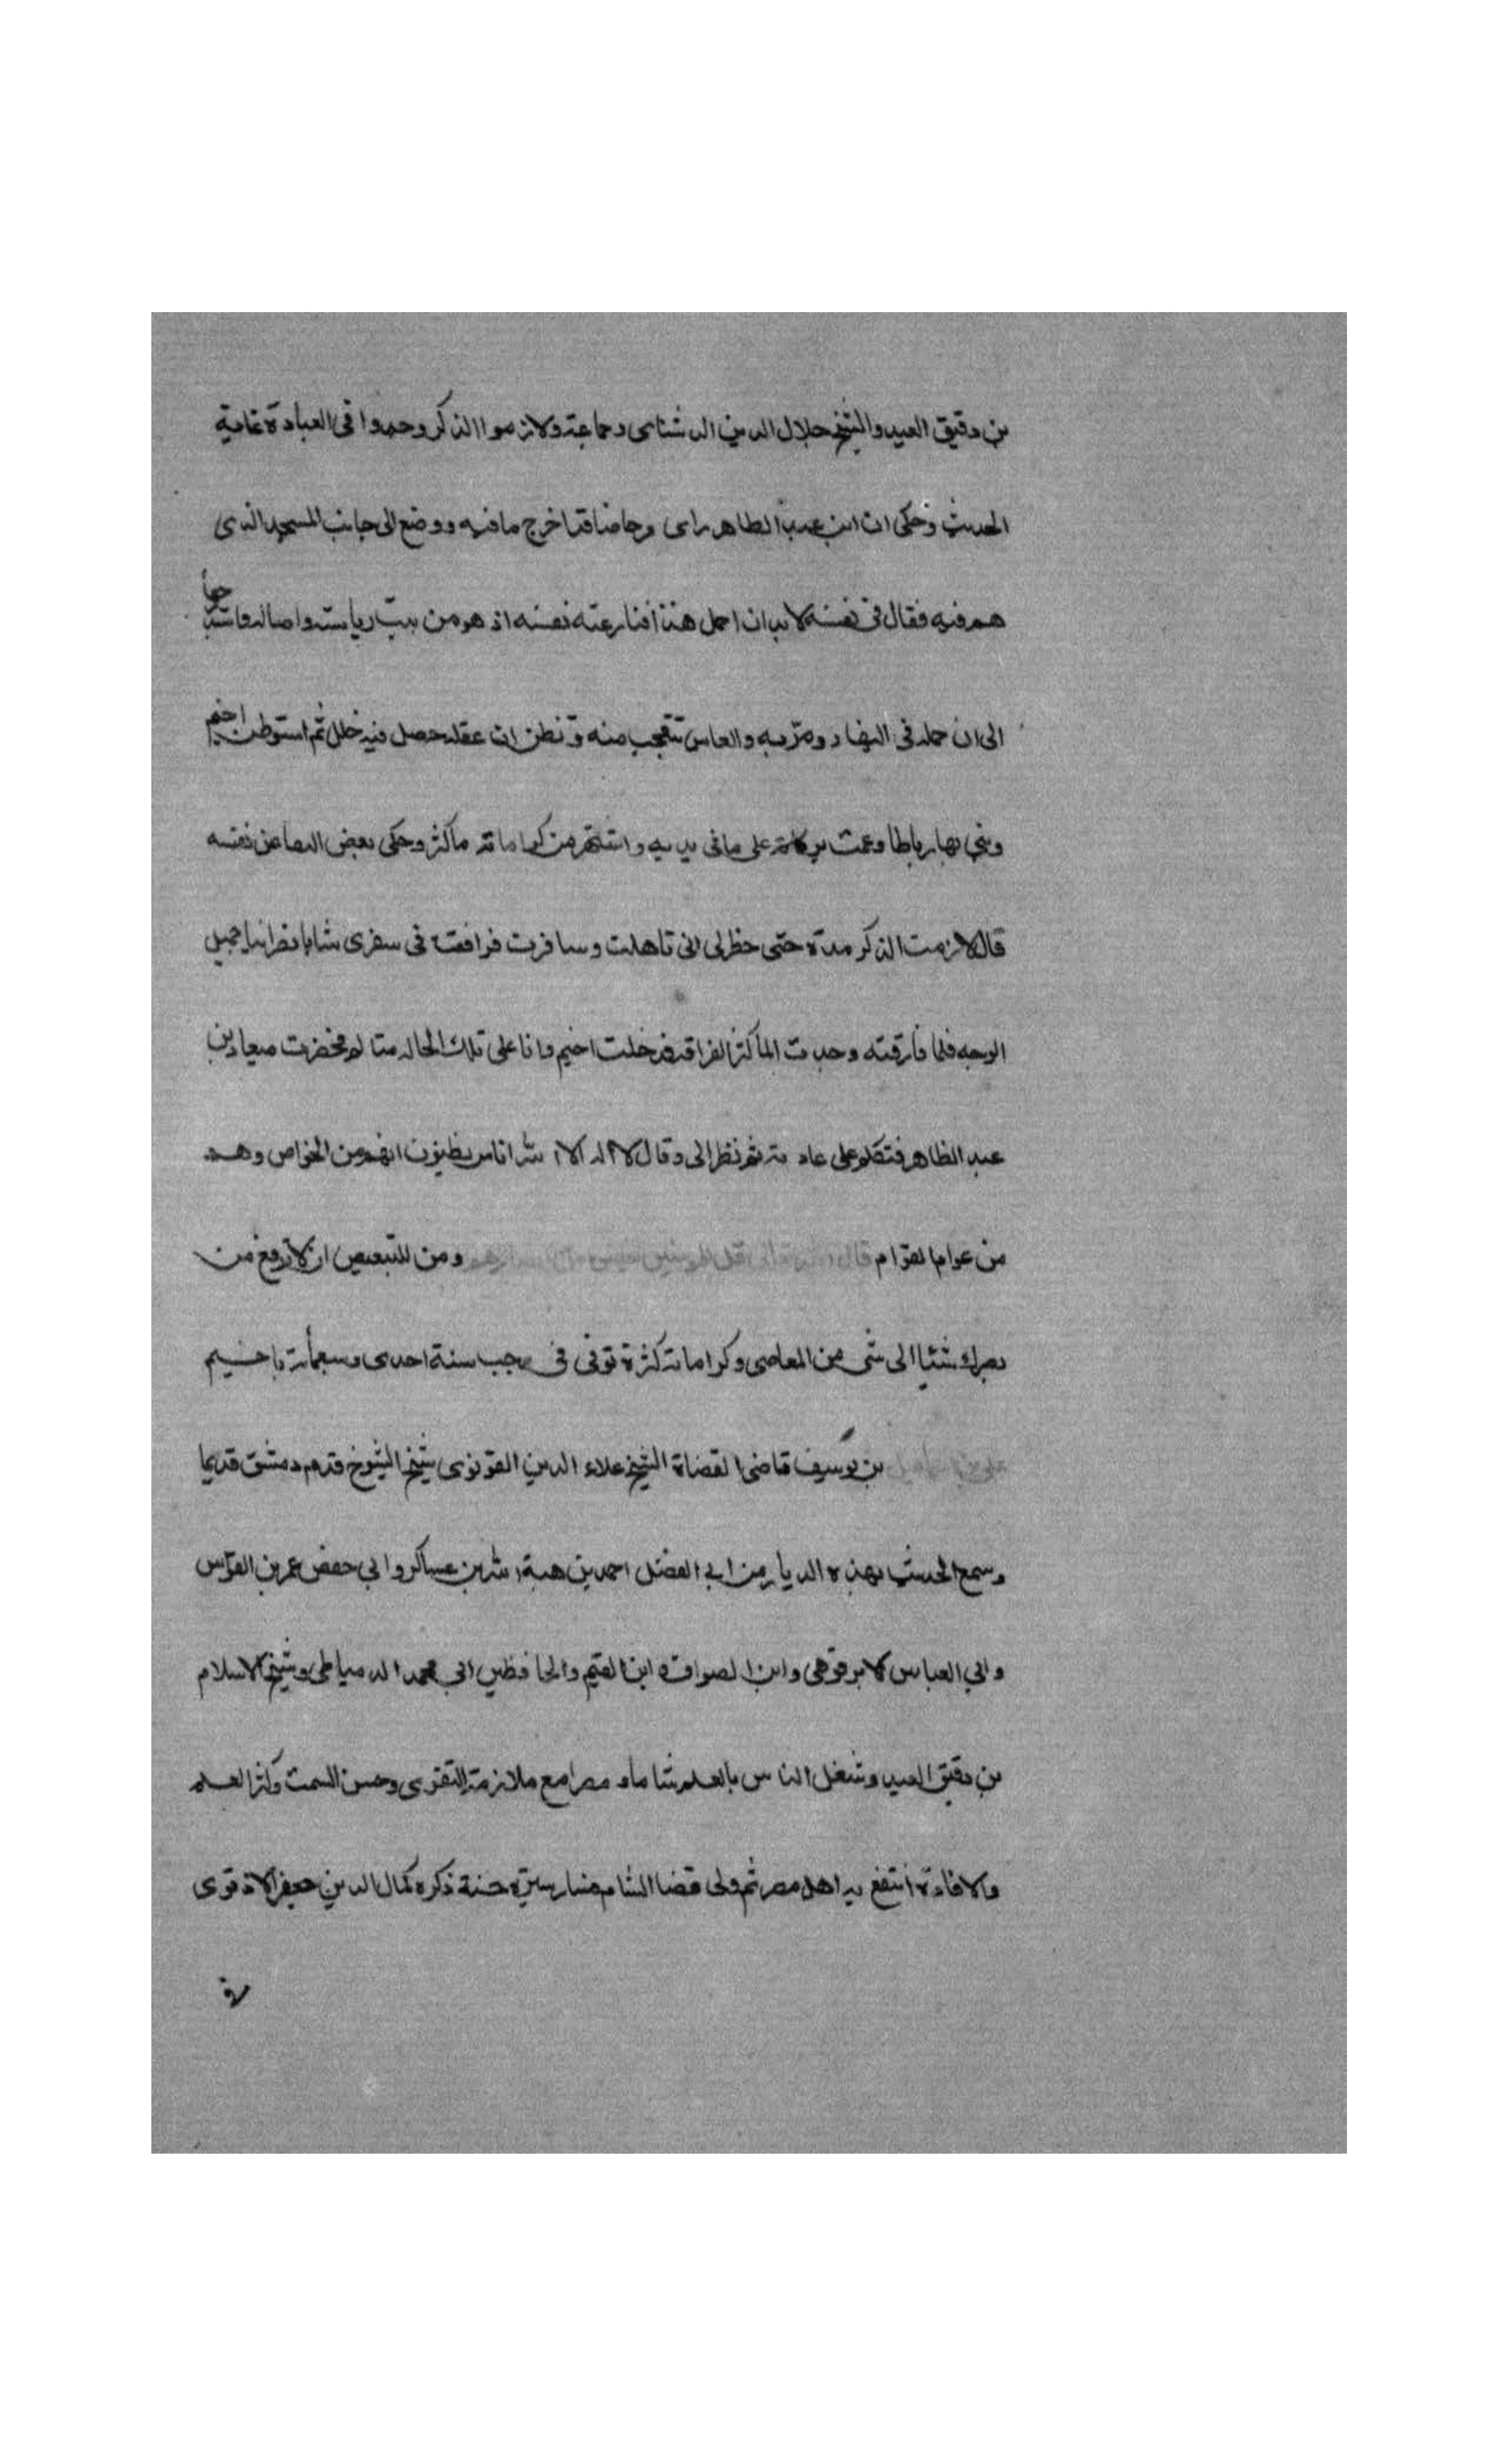 بن دقيق العيد والشيخ جلال الدين الدشناى وجماعة ولازموا الذكر وجدوا فى العبادة غاية
الحديث وحكى ان ابن عبد الطاهر راى مرحاضا قد اخرج ما فيه ووضع الى جانب المسجد الذى
هم فيه فقال فى نفسه لا بد ان احمل هذا فنازعته نفسه اذ هو من بيت رياسة واصالة
الى ان حمله فى النهار ومر به والناس تتعجب منه وتظن ان عقله حصل فيه خلل ثم استوطن اخميم
وبنى بها رباطا وعمت بركاته على ما فى يديه واشتهر من كراماته ما كثر وحكى بعض عن نفسه
قال لازمت الذكر مدة حتى خطر لى انى تاهلت وسافرت فرافقت فى سفرى شابا نصرانيا جميل
الوجه فلما فارقته وجدت الما كثيرا لفراقه فدخلت اخميم وانا على تلك الحالة متالم فحضرت ميعاد بن
عبد الظاهر فتكلم على عادته ثم نظر الى وقال لا اله الا الله اناس يظنون انهم من الخواص وهم
من عوام العوام قال الله تعالى قل للمؤمنين ومن للتبعيض ان لا ترفع من
بصرك شئيا الى شى من المعاصى وكراماته كثرة توفى فى رجب سنة احدى وسبعمأئة باخميم
بن يوسف قاضى القضاة الشيخ علاء الدين القونوى شيخ الشيوخ قدم دمشق قديما
وسمع الحديث بهذه الديار من ابى الفضل احمد بن هبة الله بن عساكر وابى حفص عمر بن القواس
وابي العباس الابرقوهى وابن الصواف وابن القيم والحافظين ابى محمد الدمياطى وشيخ الاسلام
بن دقيق العيد وشغل الناس بالعلم شاما ومصرا مع ملازمة التقوى وحسن السمت وكثرا لعلم
والافادة انتفع به اهل مصر ثم ولى قضا الشام فسار سيرة حسنة ذكره كمال الدين جعفر الادفوى
فى